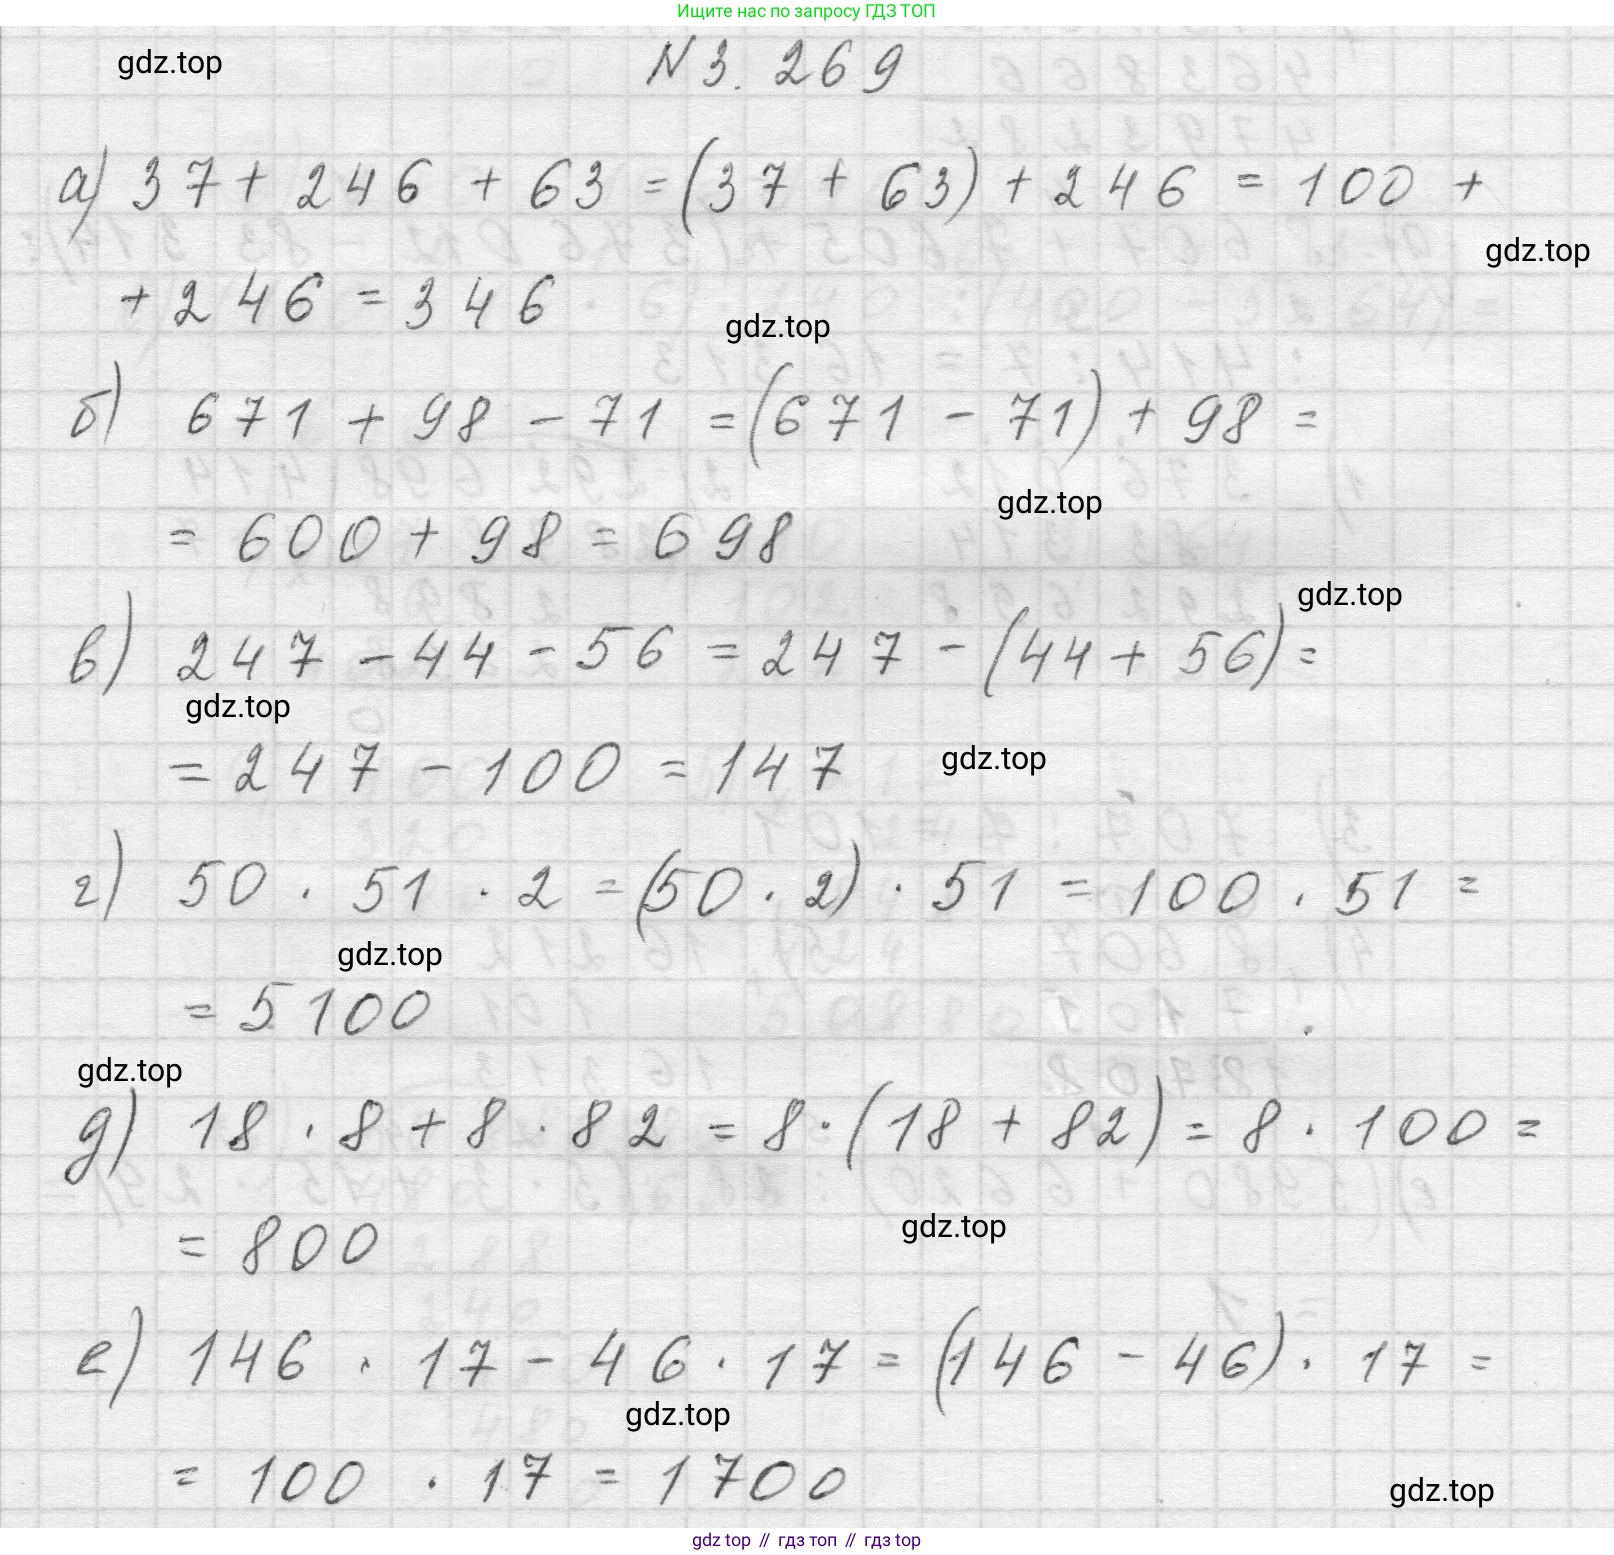 Ищите нас по запросу ГДЗ ТОП
gdz.top
N 3. 269
а) 37 + 246 + 63 = (37 + 63) + 246 = 100 +
gdz.top
+ 246 = 346
gdz.top
б) 671 + 98 - 71 = (671 - 71) + 98 =
gdz.top
= 600 + 98 = 698
gdz.top
в) 247 - 44 - 56 = 247 - (44 + 56) =
gdz.top
= 247 - 100 = 147
gdz.top
г) 50 · 51 · 2 = (50 · 2) · 51 = 100 · 51 =
gdz.top
= 5100
gdz.top
д) 18 · 8 + 8 · 82 = 8 · (18 + 82) = 8 · 100 =
gdz.top
= 800
е) 146 · 17 - 46 · 17 = (146 - 46) · 17 =
gdz.top
= 100 · 17 = 1700
gdz.top
gdz top // гдз топ // гдз top